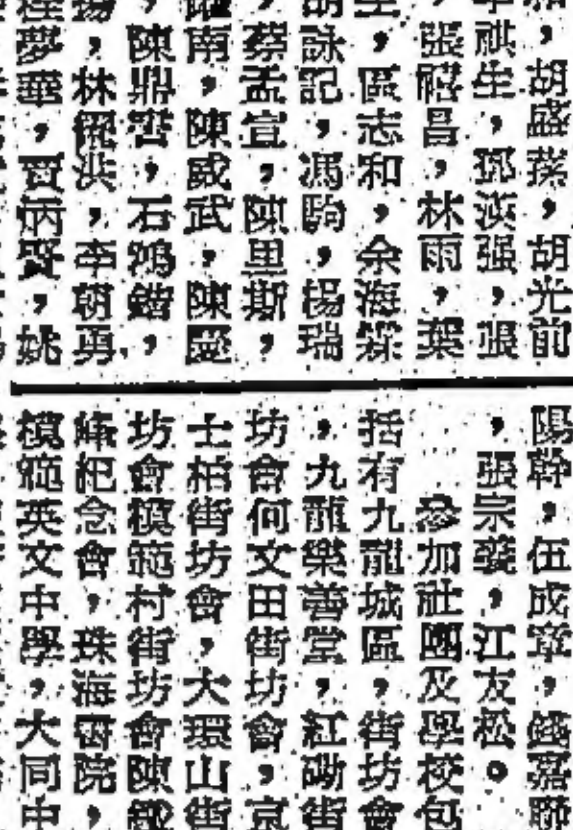 胡盛蓀，胡光前
祺生，鄧淡强，張
張禧昌，林雨，葉
區志和，余海籙
胡詠記，馮駒，楊瑞
蔡孟宣，陳里斯，
南，陳威武，陳慶
陳鼎，石鴻鍇，
林洪，李朝勇，
夢華，賈炳賢，姚
陽幹，伍成章，錢嘉聯
，張宗燊，江友松。
參加社團及學校包
括有九龍城區，街坊會
，九龍樂善堂，紅磡街
坊會何文田街坊會，京
士柏街坊會，大環山街
坊會模範村街坊會陳
紀念會，珠海書院，
模範英文中學，大同中